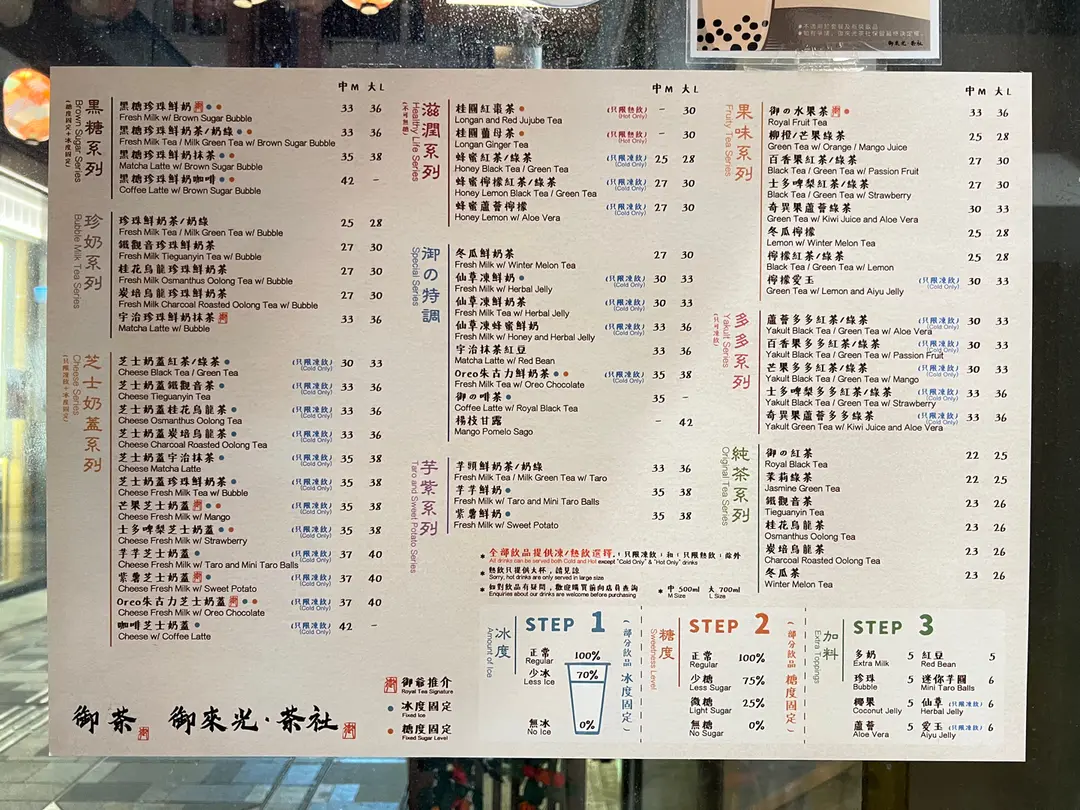 *不適用於套餐及瓶裝飲品
御來光·茶社
中M 大L
黑糖系列
Brown Sugar Series
(糖度固定+冰度固定)
黑糖珍珠鮮奶 33 36
Fresh Milk w/ Brown Sugar Bubble
黑糖珍珠鮮奶茶/奶綠 33 36
Fresh Milk Tea / Milk Green Tea w/ Brown Sugar Bubble
黑糖珍珠鮮奶抹茶 35 38
Matcha Latte w/ Brown Sugar Bubble
黑糖珍珠鮮奶咖啡 42 -
Coffee Latte w/ Brown Sugar Bubble
珍奶系列
Bubble Milk Tea Series
珍珠鮮奶茶/奶綠 25 28
Fresh Milk Tea / Milk Green Tea w/ Bubble
鐵觀音珍珠鮮奶茶 27 30
Fresh Milk Tieguanyin Tea w/ Bubble
桂花烏龍珍珠鮮奶茶 27 30
Fresh Milk Osmanthus Oolong Tea w/ Bubble
炭培烏龍珍珠鮮奶茶 27 30
Fresh Milk Charcoal Roasted Oolong Tea w/ Bubble
宇治珍珠鮮奶抹茶 33 36
Matcha Latte w/ Bubble
芝士奶蓋系列
Cheese Series
(只限凍飲+冰度固定)
芝士奶蓋紅茶/綠茶 (只限凍飲) 30 33
Cheese Black Tea / Green Tea (Cold Only)
芝士奶蓋鐵觀音茶 (只限凍飲) 33 36
Cheese Tieguanyin Tea (Cold Only)
芝士奶蓋桂花烏龍茶 (只限凍飲) 33 36
Cheese Osmanthus Oolong Tea (Cold Only)
芝士奶蓋炭培烏龍茶 (只限凍飲) 33 36
Cheese Charcoal Roasted Oolong Tea (Cold Only)
芝士奶蓋宇治抹茶 (只限凍飲) 35 38
Cheese Matcha Latte (Cold Only)
芝士奶蓋珍珠鮮奶茶 (只限凍飲) 35 38
Cheese Fresh Milk Tea w/ Bubble (Cold Only)
芒果芝士奶蓋 (只限凍飲) 35 38
Cheese Fresh Milk w/ Mango (Cold Only)
士多啤梨芝士奶蓋 (只限凍飲) 35 38
Cheese Fresh Milk w/ Strawberry (Cold Only)
芋芋芝士奶蓋 (只限凍飲) 37 40
Cheese Fresh Milk w/ Taro and Mini Taro Balls (Cold Only)
紫薯芝士奶蓋 (只限凍飲) 37 40
Cheese Fresh Milk w/ Sweet Potato (Cold Only)
Oreo朱古力芝士奶蓋 (只限凍飲) 37 40
Cheese Fresh Milk w/ Oreo Chocolate (Cold Only)
咖啡芝士奶蓋 (只限凍飲) 42 -
Cheese w/ Coffee Latte (Cold Only)
御茶 御來光·茶社
御爺推介
Royal Tea Signature
冰度固定
Fixed Ice
糖度固定
Fixed Sugar Level
中M 大L
滋潤系列
Healthy Life Series
(不可無糖)
桂圓紅棗茶 (只限熱飲) - 30
Longan and Red Jujube Tea (Hot Only)
桂圓薑母茶 (只限熱飲) - 30
Longan Ginger Tea (Hot Only)
蜂蜜紅茶/綠茶 (只限凍飲) 25 28
Honey Black Tea / Green Tea (Cold Only)
蜂蜜檸檬紅茶/綠茶 (只限凍飲) 27 30
Honey Lemon Black Tea / Green Tea (Cold Only)
蜂蜜蘆薈檸檬 (只限凍飲) 27 30
Honey Lemon w/ Aloe Vera (Cold Only)
御の特調
Special Series
冬瓜鮮奶茶 27 30
Fresh Milk w/ Winter Melon Tea
仙草凍鮮奶 (只限凍飲) 30 33
Fresh Milk w/ Herbal Jelly (Cold Only)
仙草凍鮮奶茶 (只限凍飲) 30 33
Fresh Milk Tea w/ Herbal Jelly (Cold Only)
仙草凍蜂蜜鮮奶 (只限凍飲) 33 36
Fresh Milk w/ Honey and Herbal Jelly (Cold Only)
宇治抹茶紅豆 33 36
Matcha Latte w/ Red Bean
Oreo朱古力鮮奶茶 (只限凍飲) 35 38
Fresh Milk Tea w/ Oreo Chocolate (Cold Only)
御の啡茶 35 -
Coffee Latte w/ Royal Black Tea
楊枝甘露 - 42
Mango Pomelo Sago
芋紫系列
Taro and Sweet Potato Series
芋頭鮮奶茶/奶綠 33 36
Fresh Milk Tea / Milk Green Tea w/ Taro
芋芋鮮奶 35 38
Fresh Milk w/ Taro and Mini Taro Balls
紫薯鮮奶 35 38
Fresh Milk w/ Sweet Potato
*全部飲品提供凍/熱飲選擇,(只限凍飲)和(只限熱飲)除外
All drinks can be served both Cold and Hot except "Cold Only" & "Hot Only" drinks
*熱飲只提供大杯,請見諒
Sorry, hot drinks are only served in large size
*如對飲品有疑問,歡迎購買前向店員查詢
Enquiries about our drinks are welcome before purchasing
*中 500ml 大 700ml
M Size L Size
中M 大L
果味系列
Fruity Tea Series
御の水果茶 33 36
Royal Fruit Tea
柳橙/芒果綠茶 25 28
Green Tea w/ Orange / Mango Juice
百香果紅茶/綠茶 27 30
Black Tea / Green Tea w/ Passion Fruit
士多啤梨紅茶/綠茶 27 30
Black Tea / Green Tea w/ Strawberry
奇異果蘆薈綠茶 30 33
Green Tea w/ Kiwi Juice and Aloe Vera
冬瓜檸檬 25 28
Lemon w/ Winter Melon Tea
檸檬紅茶/綠茶 25 28
Black Tea / Green Tea w/ Lemon
檸檬愛玉 (只限凍飲) 30 33
Green Tea w/ Lemon and Aiyu Jelly (Cold Only)
多多系列
Yakult Series
(只可凍飲)
蘆薈多多紅茶/綠茶 (只限凍飲) 30 33
Yakult Black Tea / Green Tea w/ Aloe Vera (Cold Only)
百香果多多紅茶/綠茶 (只限凍飲) 30 33
Yakult Black Tea / Green Tea w/ Passion Fruit (Cold Only)
芒果多多紅茶/綠茶 (只限凍飲) 30 33
Yakult Black Tea / Green Tea w/ Mango (Cold Only)
士多啤梨多多紅茶/綠茶 (只限凍飲) 30 33
Yakult Black Tea / Green Tea w/ Strawberry (Cold Only)
奇異果蘆薈多多綠茶 (只限凍飲) 33 36
Yakult Green Tea w/ Kiwi Juice and Aloe Vera (Cold Only)
純茶系列
Original Tea Series
御の紅茶 22 25
Royal Black Tea
茉莉綠茶 22 25
Jasmine Green Tea
鐵觀音茶 23 26
Tieguanyin Tea
桂花烏龍茶 23 26
Osmanthus Oolong Tea
炭培烏龍茶 23 26
Charcoal Roasted Oolong Tea
冬瓜茶 23 26
Winter Melon Tea
冰度
Amount of Ice
STEP 1
正常 100%
Regular
少冰 70%
Less Ice
無冰 0%
No Ice
(部分飲品 冰度固定)
糖度
Sweetness Level
STEP 2
正常 100%
Regular
少糖 75%
Less Sugar
微糖 25%
Light Sugar
無糖 0%
No Sugar
(部分飲品 糖度固定)
加料
Extra Toppings
STEP 3
多奶 5 紅豆 5
Extra Milk Red Bean
珍珠 5 迷你芋圓 6
Bubble Mini Taro Balls
椰果 5 仙草 (只限凍飲) 6
Coconut Jelly Herbal Jelly (Cold Only)
蘆薈 5 愛玉 (只限凍飲) 6
Aloe Vera Aiyu Jelly (Cold Only)